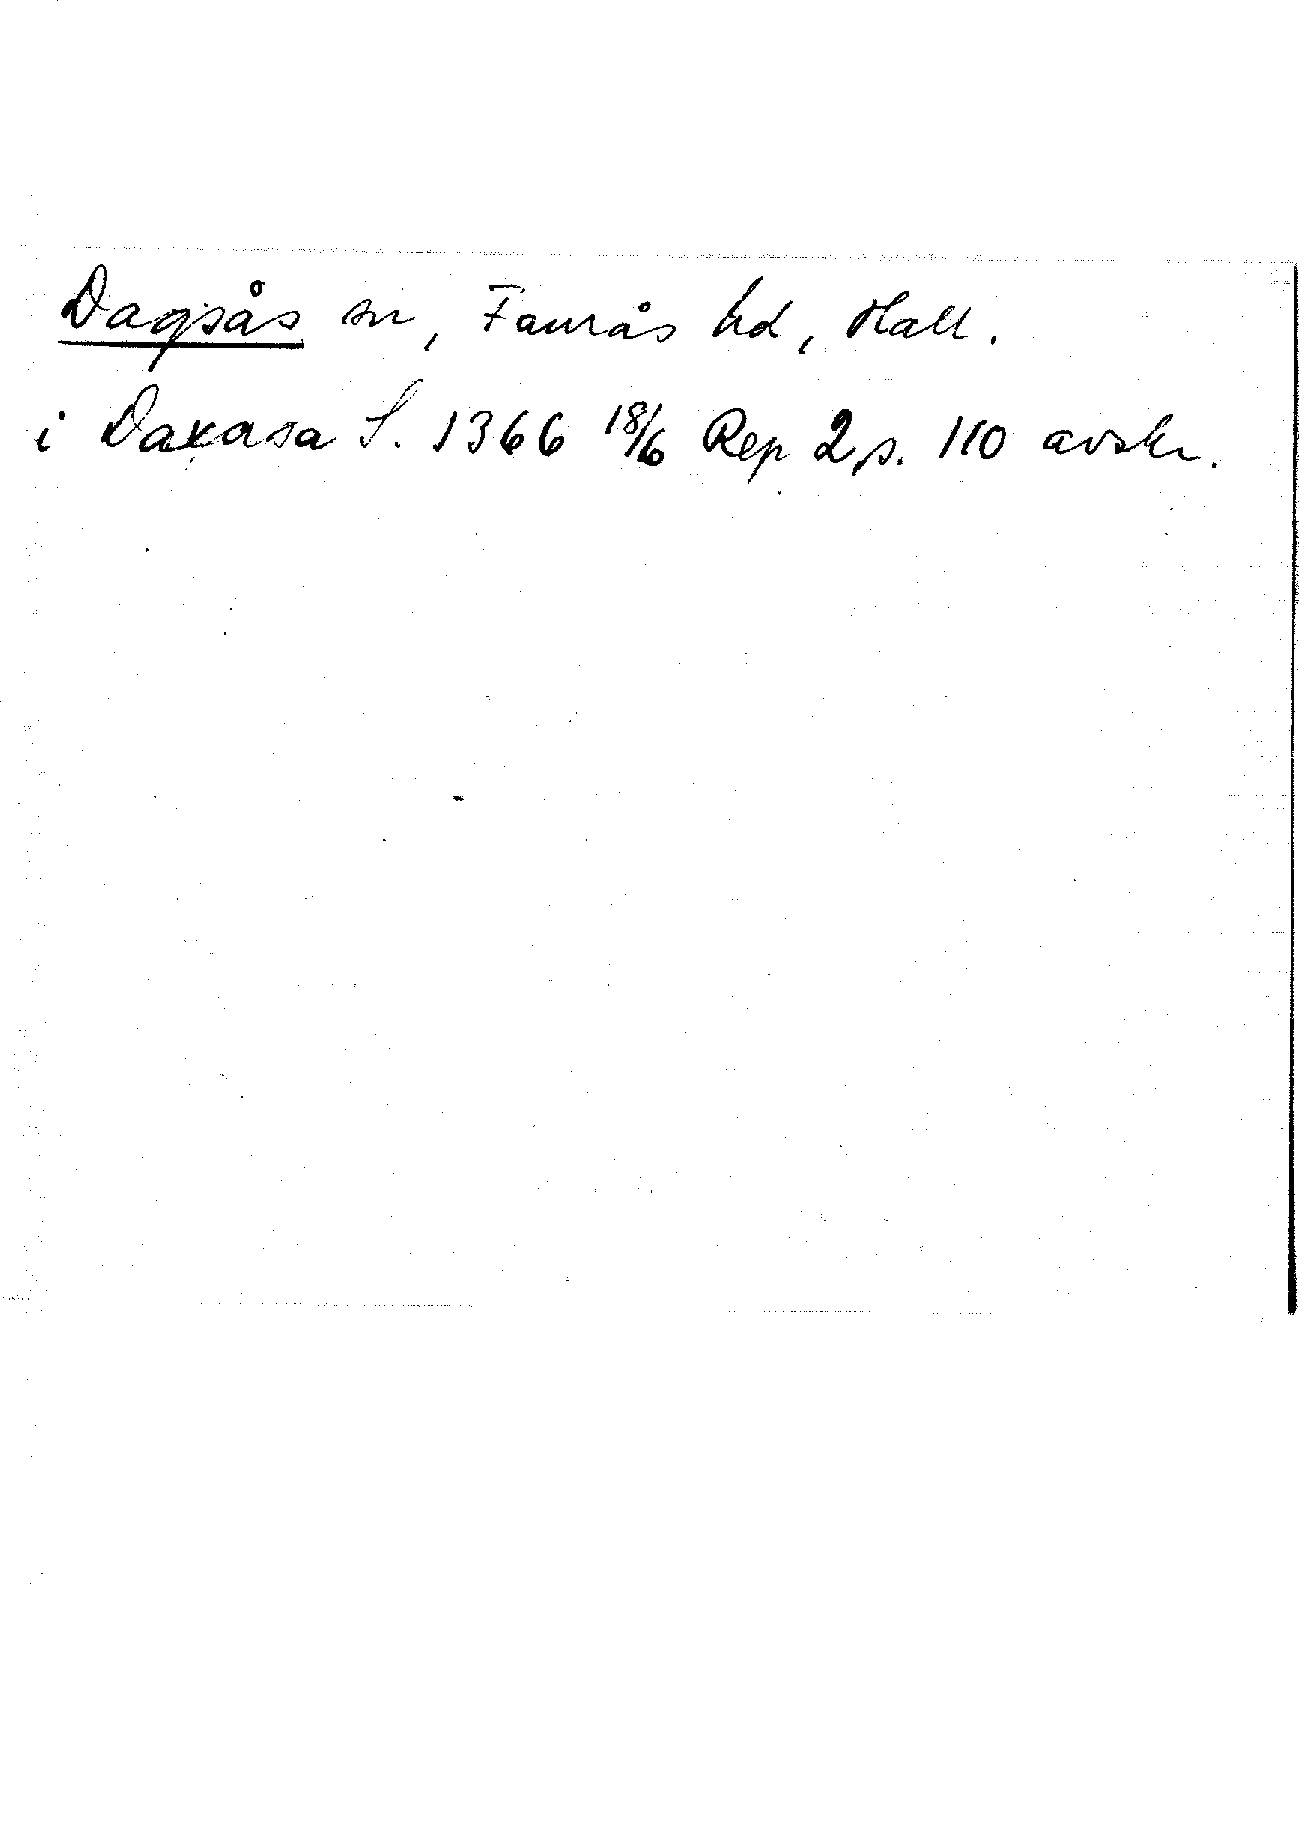 Dagsås sn, Faurås hd, Hall.
i Daxasa S. 1366 18/6 Rep 2, s. 110 avskr.